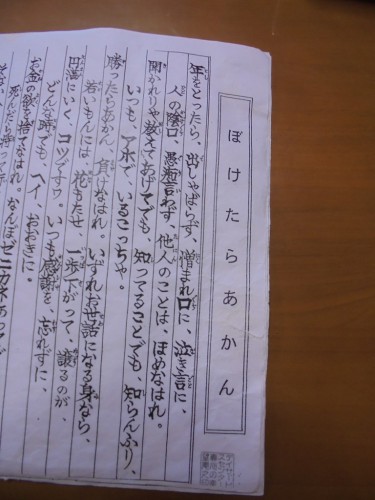 ぼけたらあかん
年をとったら、出しゃばらず、憎まれ口に、泣き言に、
人の陰口、愚痴言わず、他人のことは、ほめなはれ。
聞かれりゃ教えてあげてでも、知ってることでも、知らんふり、
いつも、アホで、いるこっちゃ。
勝ったらあかん、負けなはれ。いずれお世話になる身なら、
若いもんには、花もたせ、一歩下がって、譲るのが、
円満にいく、コツですワ。いつも感謝を、忘れずに、
どんな時でも、ヘイ、おおきに。
お金の欲を捨てなはれ。なんぼゼニカネあっても